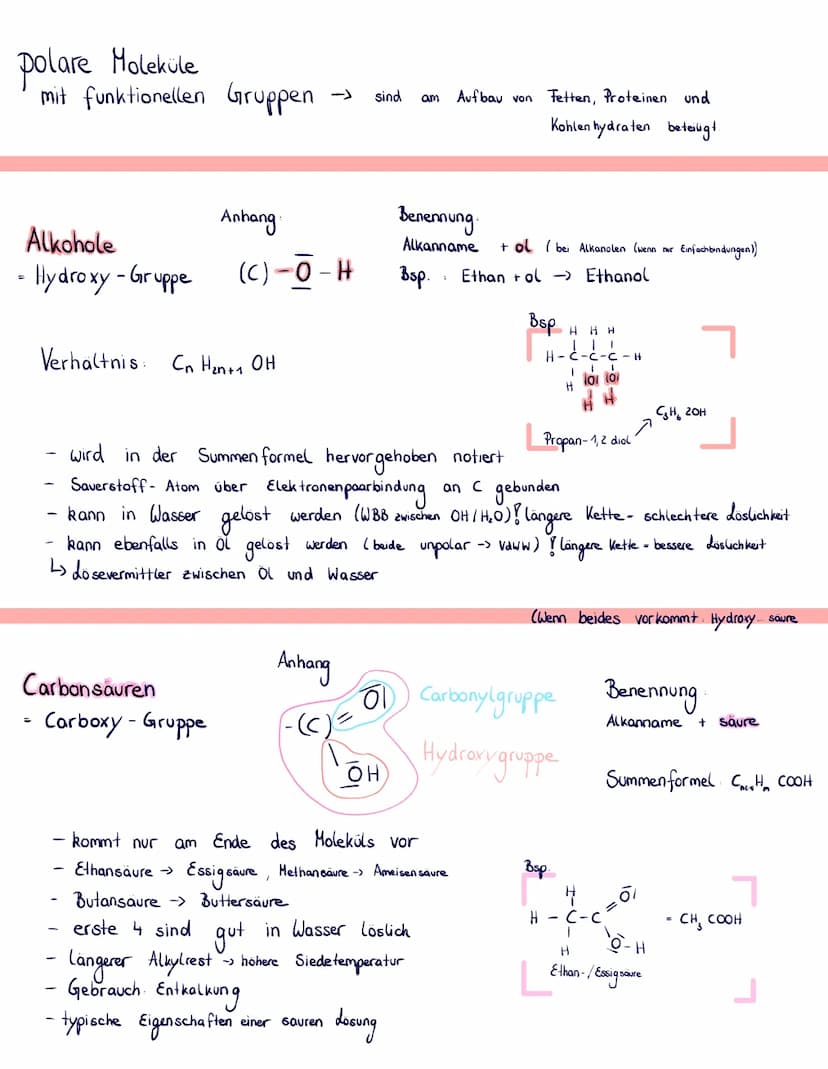 polare Moleküle
mit funktionellen Gruppen → sind am Aufbau von Fetten, Proteinen und
Kohlenhydraten beteiligt
Anhang:
Benennung:
Alkohole
Alkanname + ol (bei Alkanolen (wenn nur Einfachbindungen))
= Hydroxy-Gruppe
(C)-O-H
Bsp.: Ethan + ol → Ethanol
Bsp.
H H H
Verhältnis: Cn H2n+1 OH
H-C-C-C-H
H |O| |O|
H H
C3H6 2OH
Propan-1,2 diol
- wird in der Summenformel hervorgehoben notiert
- Sauerstoff-Atom über Elektronenpaarbindung an C gebunden
- kann in Wasser gelöst werden (WBB zwischen OH/H2O)! längere Kette - schlechtere Löslichkeit
- kann ebenfalls in Öl gelöst werden (beide unpolar -> VdWW) ! längere Kette = bessere Löslichkeit
↳ Lösevermittler zwischen Öl und Wasser
(Wenn beides vorkommt: Hydroxy-säure
Anhang
Carbonsäuren
= Carboxy-Gruppe
-(C)=O|
OH
Carbonylgruppe
Hydroxygruppe
Benennung:
Alkanname + säure
Summenformel: COOH
- kommt nur am Ende des Moleküls vor
- Ethansäure → Essigsäure, Methansäure -> Ameisensäure
- Butansäure -> Buttersäure
- erste 4 sind gut in Wasser löslich
- Längerer Alkylrest → höhere Siedetemperatur
- Gebrauch: Entkalkung
- typische Eigenschaften einer sauren Lösung
Bsp.
H
O|
H - C-C
= CH3 COOH
H
O-H
Ethan-/Essigsäure